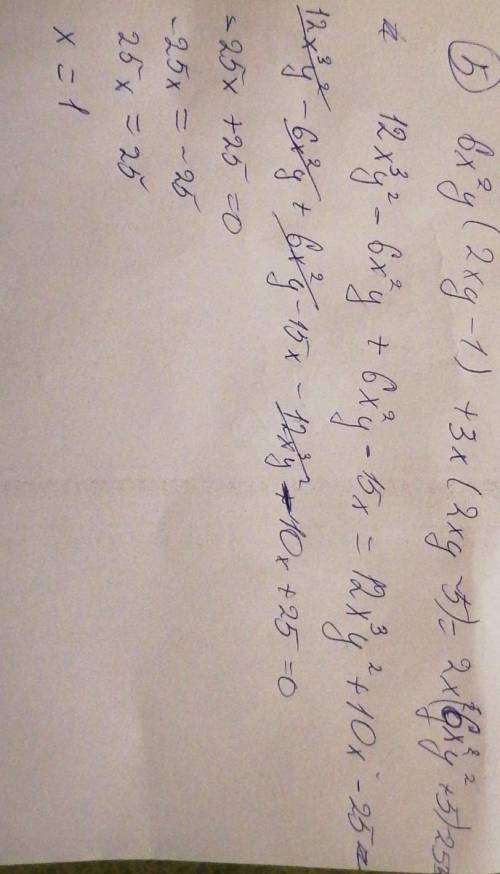 ⑤ 6x²y(2xy-1)+3x(2xy-5)=2x(6x²y²+5)-25
12x³y²-6x²y+6x²y-15x=12x³y²+10x-25
12x³y²-6x²y+6x²y-15x-12x³y²-10x+25=0
-25x+25=0
-25x=-25
25x=25
x=1